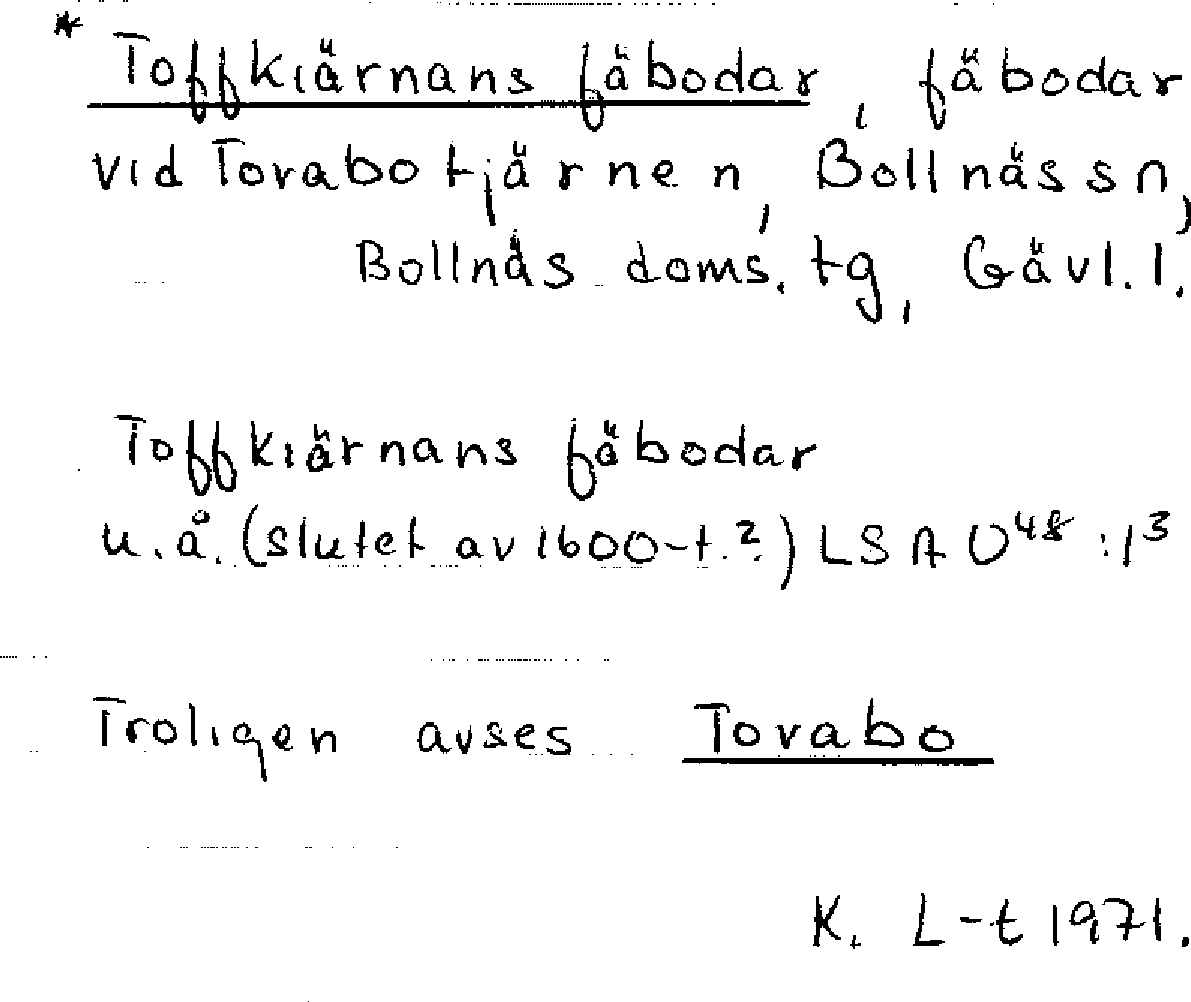 * Toffkiärnans fäbodar, fäbodar
vid Torabotjärnen, Bollnäs sn,
Bollnäs doms. tg, Gävl. l.
Toffkiärnans fäbodar
u. å. (slutet av 1600-t.?) LSA U⁴⁸:1³
Troligen avses Torabo
K. L-t 1971.